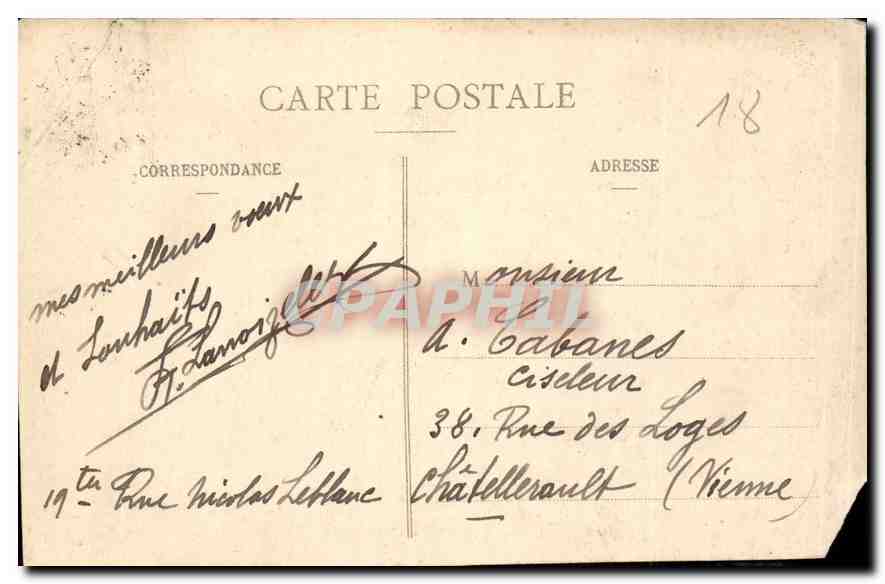 CARTE POSTALE
18
CORRESPONDANCE
mes meilleurs vœux
et Souhaits
19 ter Rue Nicolas Leblanc
ADRESSE
Monsieur
A. Cabanes
Ciseleur
38. Rue des Loges
Châtellerault (Vienne)
CPAPHIL